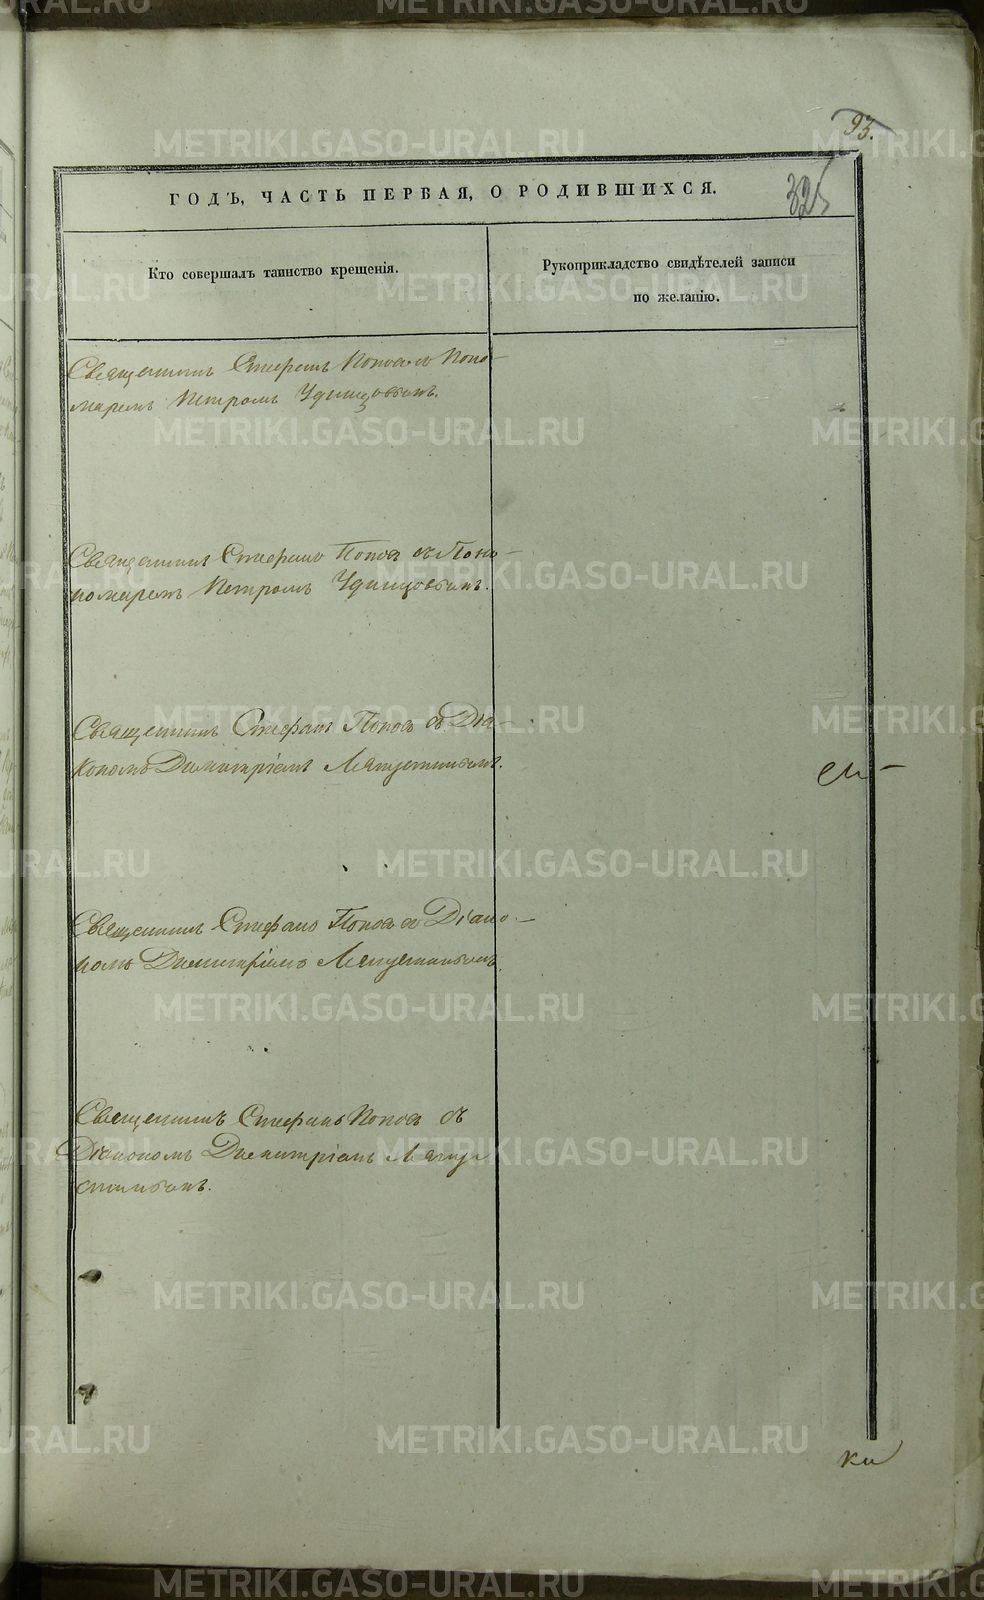 93.
325
ГОДЪ, ЧАСТЬ ПЕРВАЯ, О РОДИВШИХСЯ.
Кто совершалъ таинство крещенія.
Рукоприкладство свидѣтелей записи
по желанію.
Священникъ Стефанъ Поповъ съ Поно-
маремъ Петромъ Удинцовымъ.
Священникъ Стефанъ Поповъ съ Поно-
номаремъ Петромъ Удинцовымъ.
Священникъ Стефанъ Поповъ съ Діа-
кономъ Димитріемъ
Священникъ Стефанъ Поповъ съ Діако-
номъ Димитріемъ
Священникъ Стефанъ Поповъ съ
Діакономъ Димитріемъ
METRIKI.GASO-URAL.RU